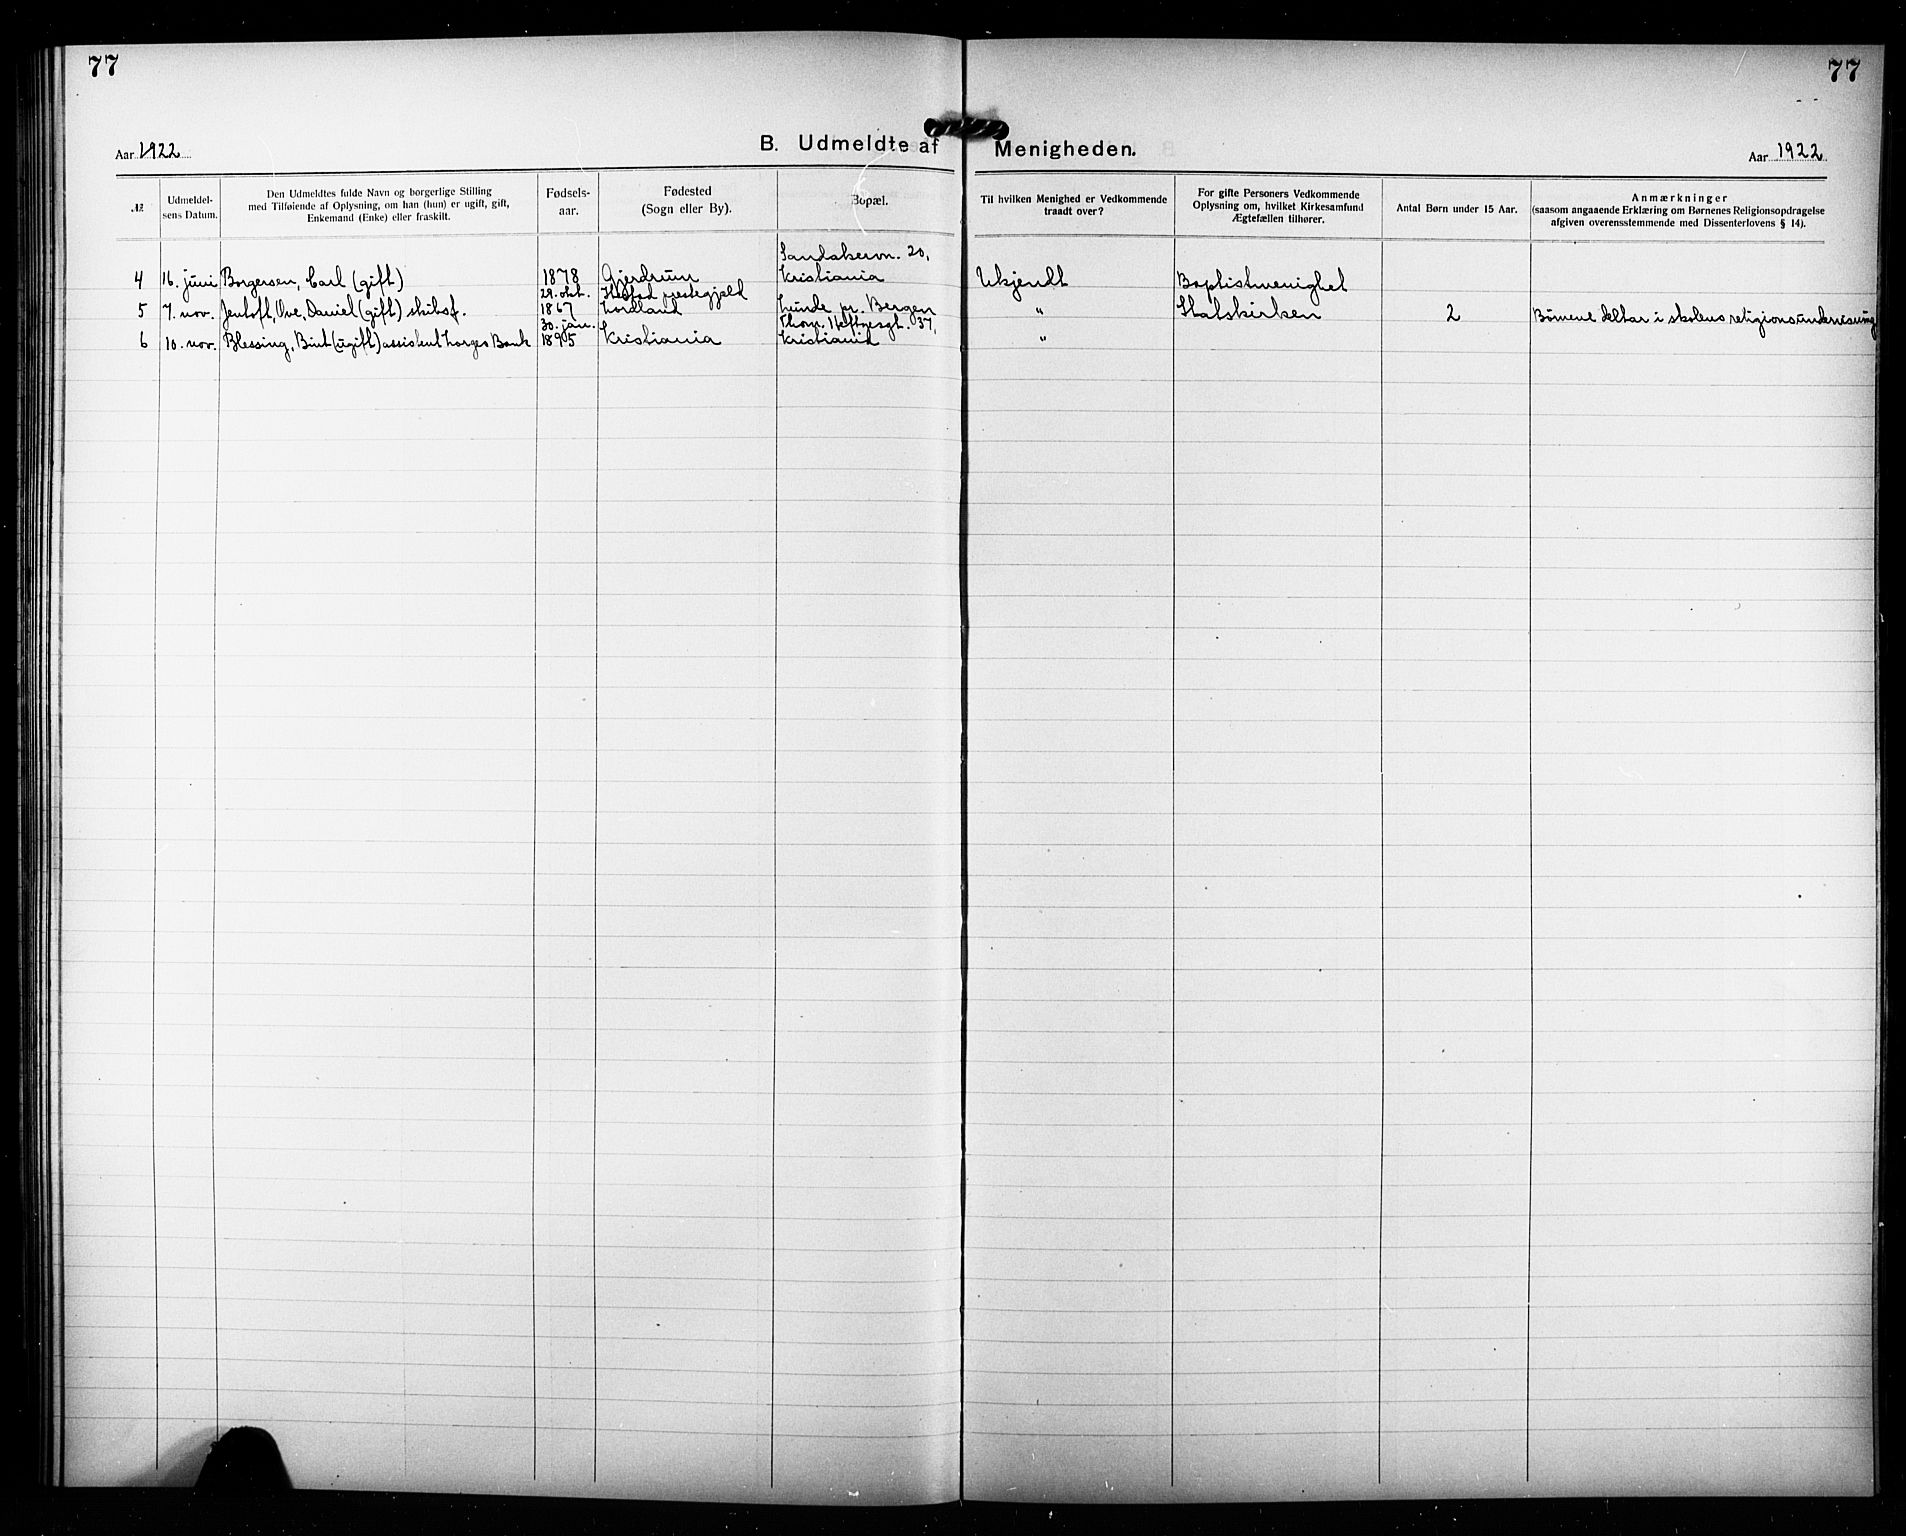 77
77
Aar 1922
B. Udmeldte af Menigheden.
Aar 1922
№
Udmeldel-
sens Datum.
Den Udmeldtes fulde Navn og borgerlige Stilling
med Tilføiende af Oplysning, om han (hun) er ugift, gift,
Enkemand (Enke) eller fraskilt.
Fødsels-
aar.
Fødested
(Sogn eller By).
Bopæl.
Til hvilken Menighed er Vedkommende
traadt over?
For gifte Personers Vedkommende
Oplysning om, hvilket Kirkesamfund
Ægtefællen tilhører.
Antal Børn under 15 Aar.
Anmærkninger
(saasom angaaende Erklæring om Børnenes Religionsopdragelse
afgiven overensstemmende med Dissenterlovens § 14).
Sandakervn. 20,
4 16. juni Borgersen, Carl (gift) 1878 Gjerdrum Kristiania Ukjendt Baptistmenighet
29. okt. prestegjeld
5 7. nov. Jentoft, Ove, Daniel (gift) skibsf. 1867 Nordland Lunde pr. Bergen " Statskirken 2 Børnene deltar i skolens religionsundervisning
30. jan. Thom. Heftyesgt. 37,
6 10. nov. Blessing, (ugift) assistent Norges Bank 1895 Kristiania Kristiania "